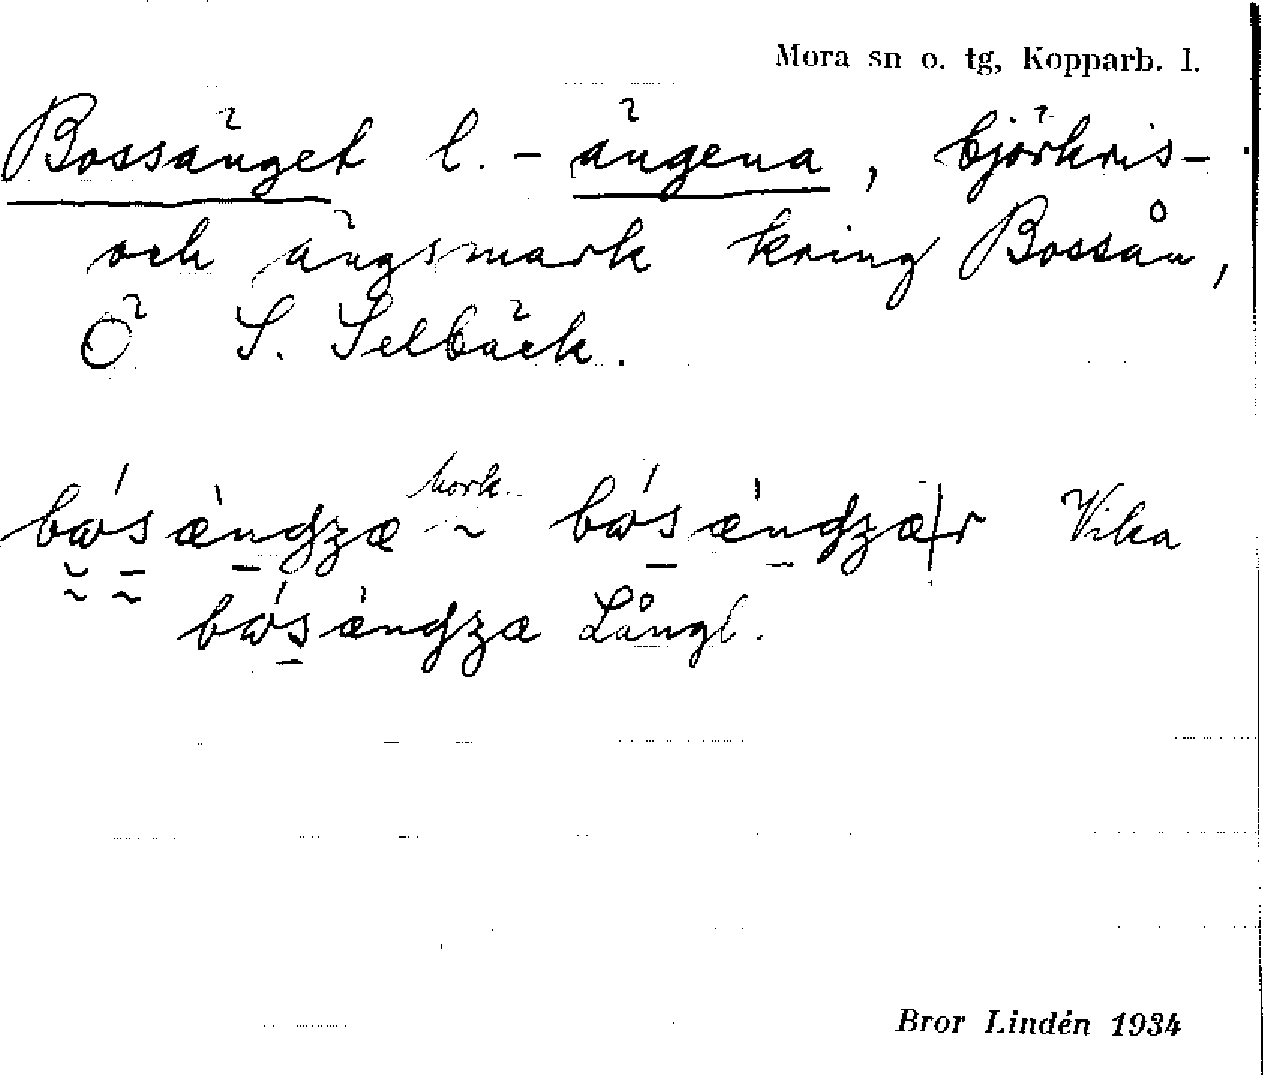 Mora sn o. tg, Kopparb. l.
Bossänget l. - ängena, björkris-
och ängsmark kring Bossån,
Ö S. Selbäck.
bὼsæ̀ngʒæ hork. ~ bὼsæ̀ngʒæ|r Vika
bὼsæ̀ngʒa Långl.
Bror Lindén 1934